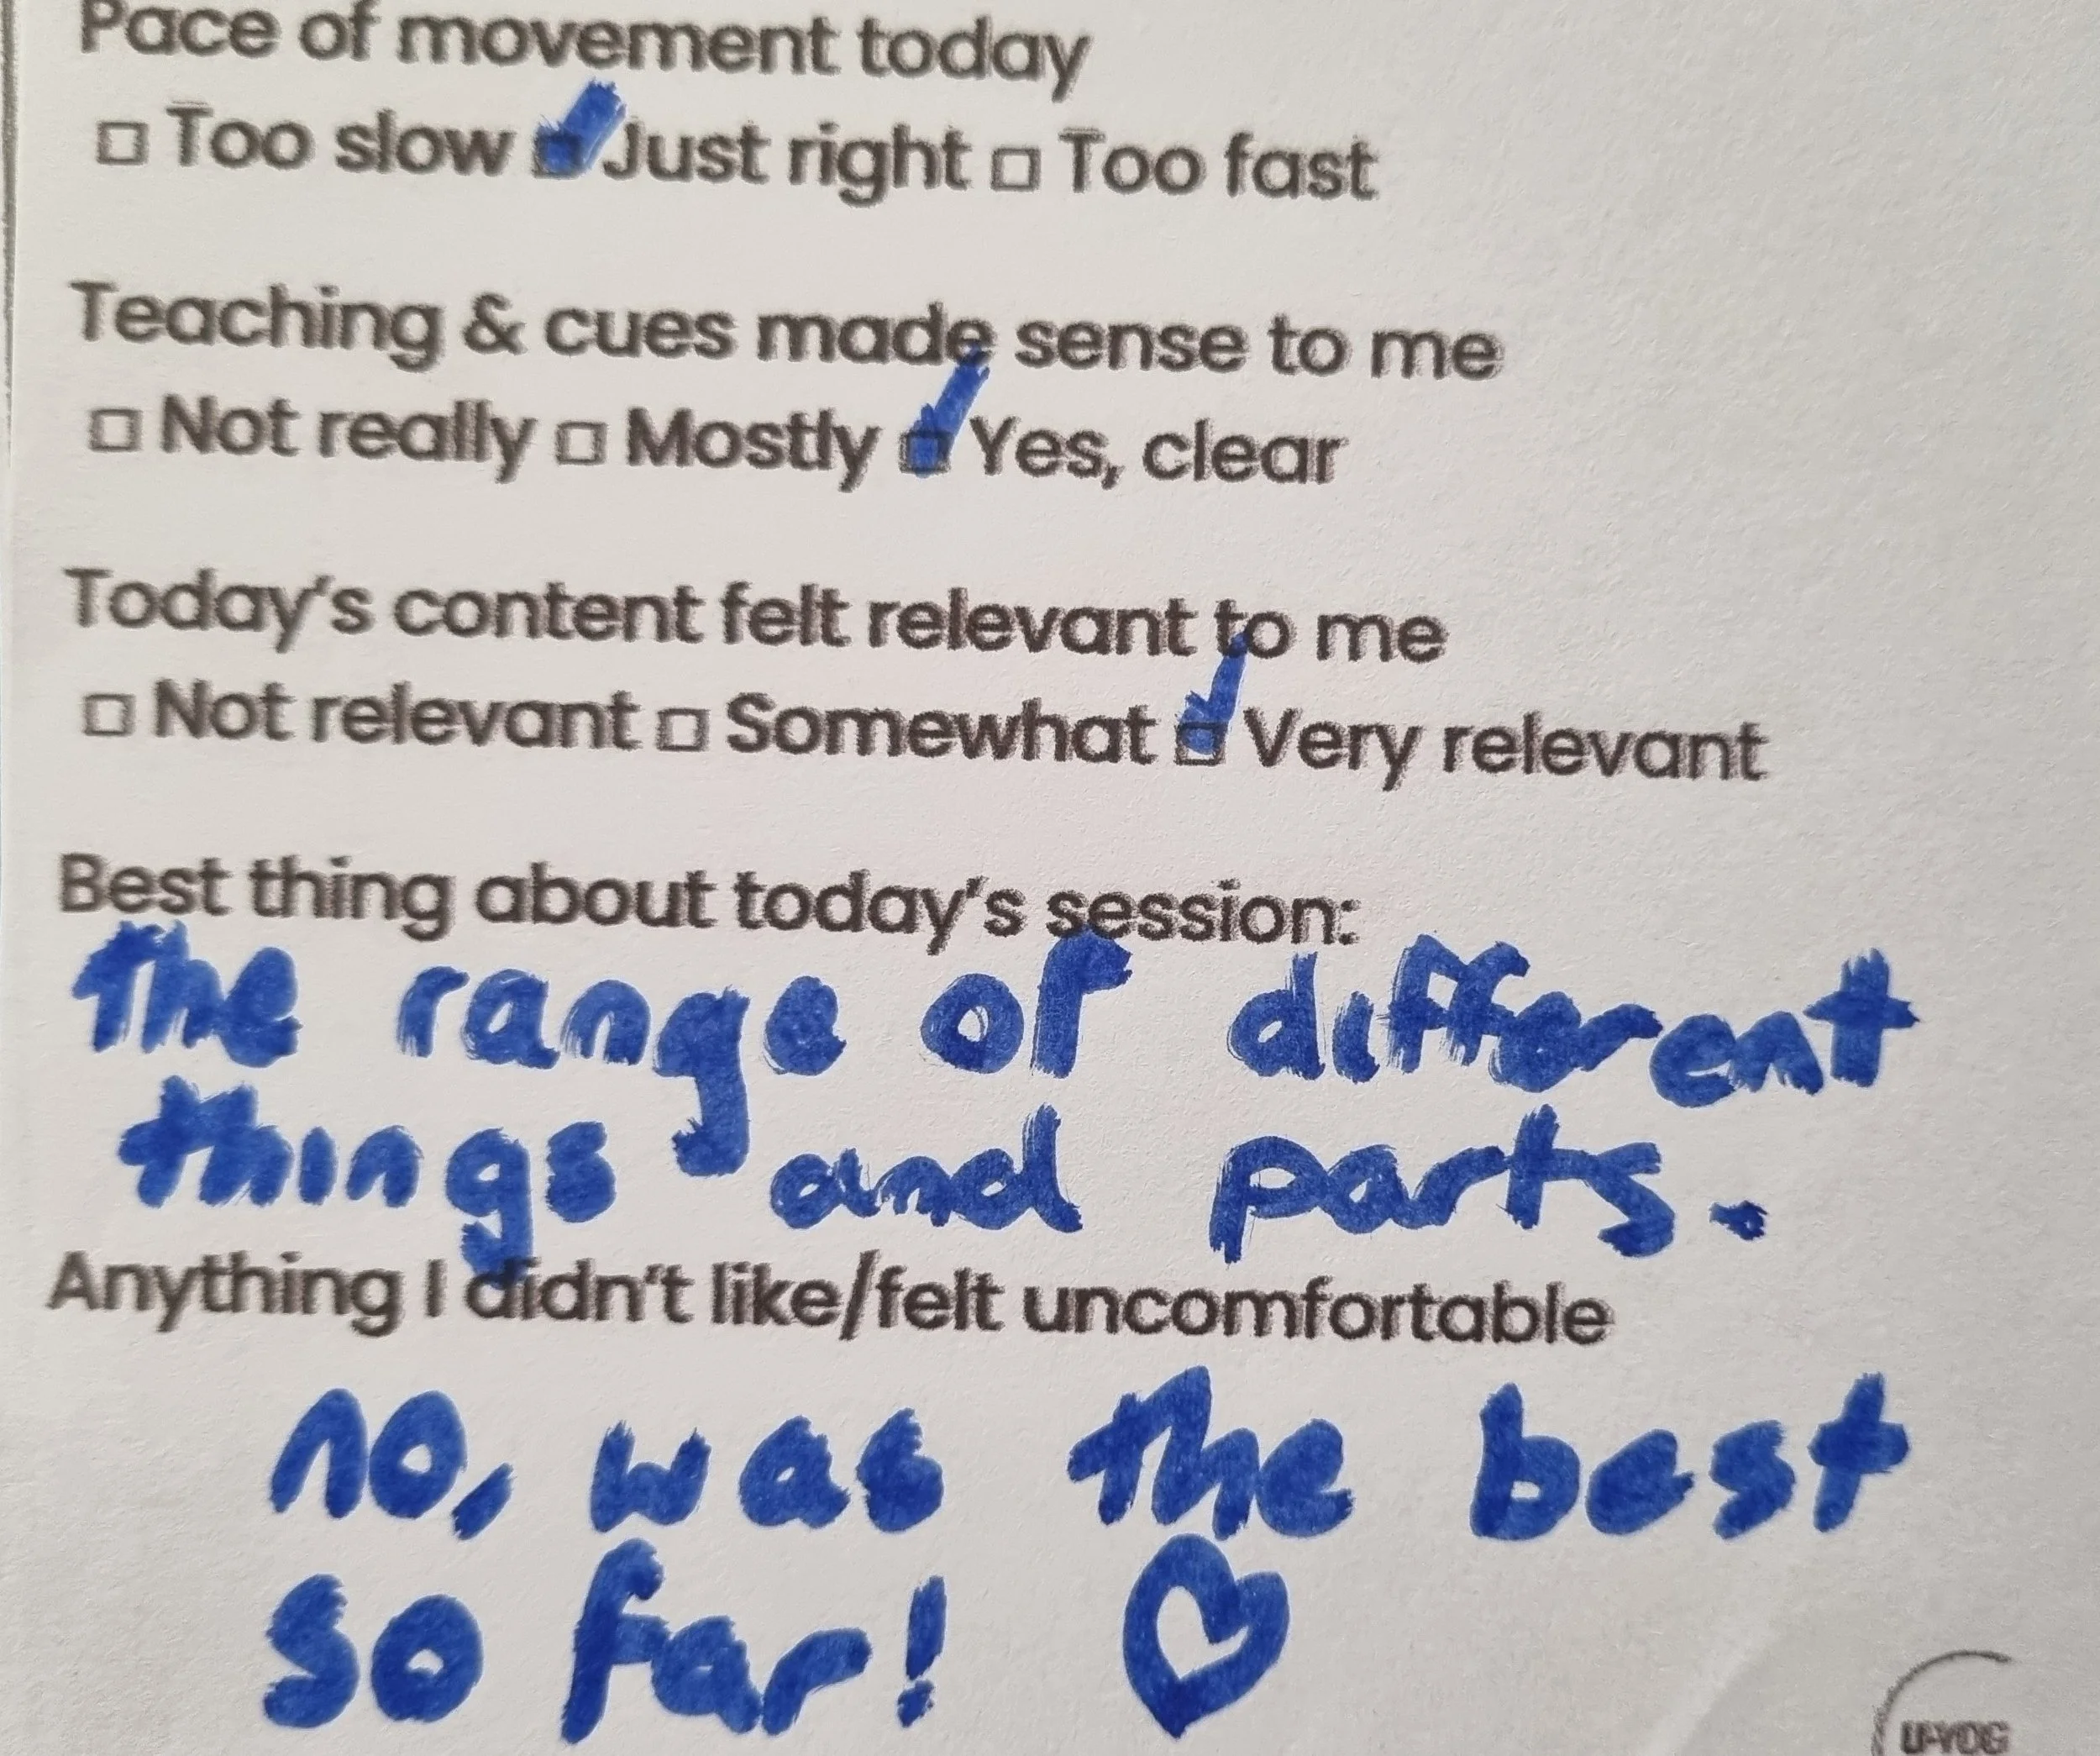 Pace of movement today
☐ Too slow ☑ Just right ☐ Too fast
Teaching & cues made sense to me
☐ Not really ☐ Mostly ☑ Yes, clear
Today's content felt relevant to me
☐ Not relevant ☐ Somewhat ☑ Very relevant
Best thing about today's session:
the range of different
things and parts.
Anything I didn't like/felt uncomfortable
no, was the best
so far! ♡